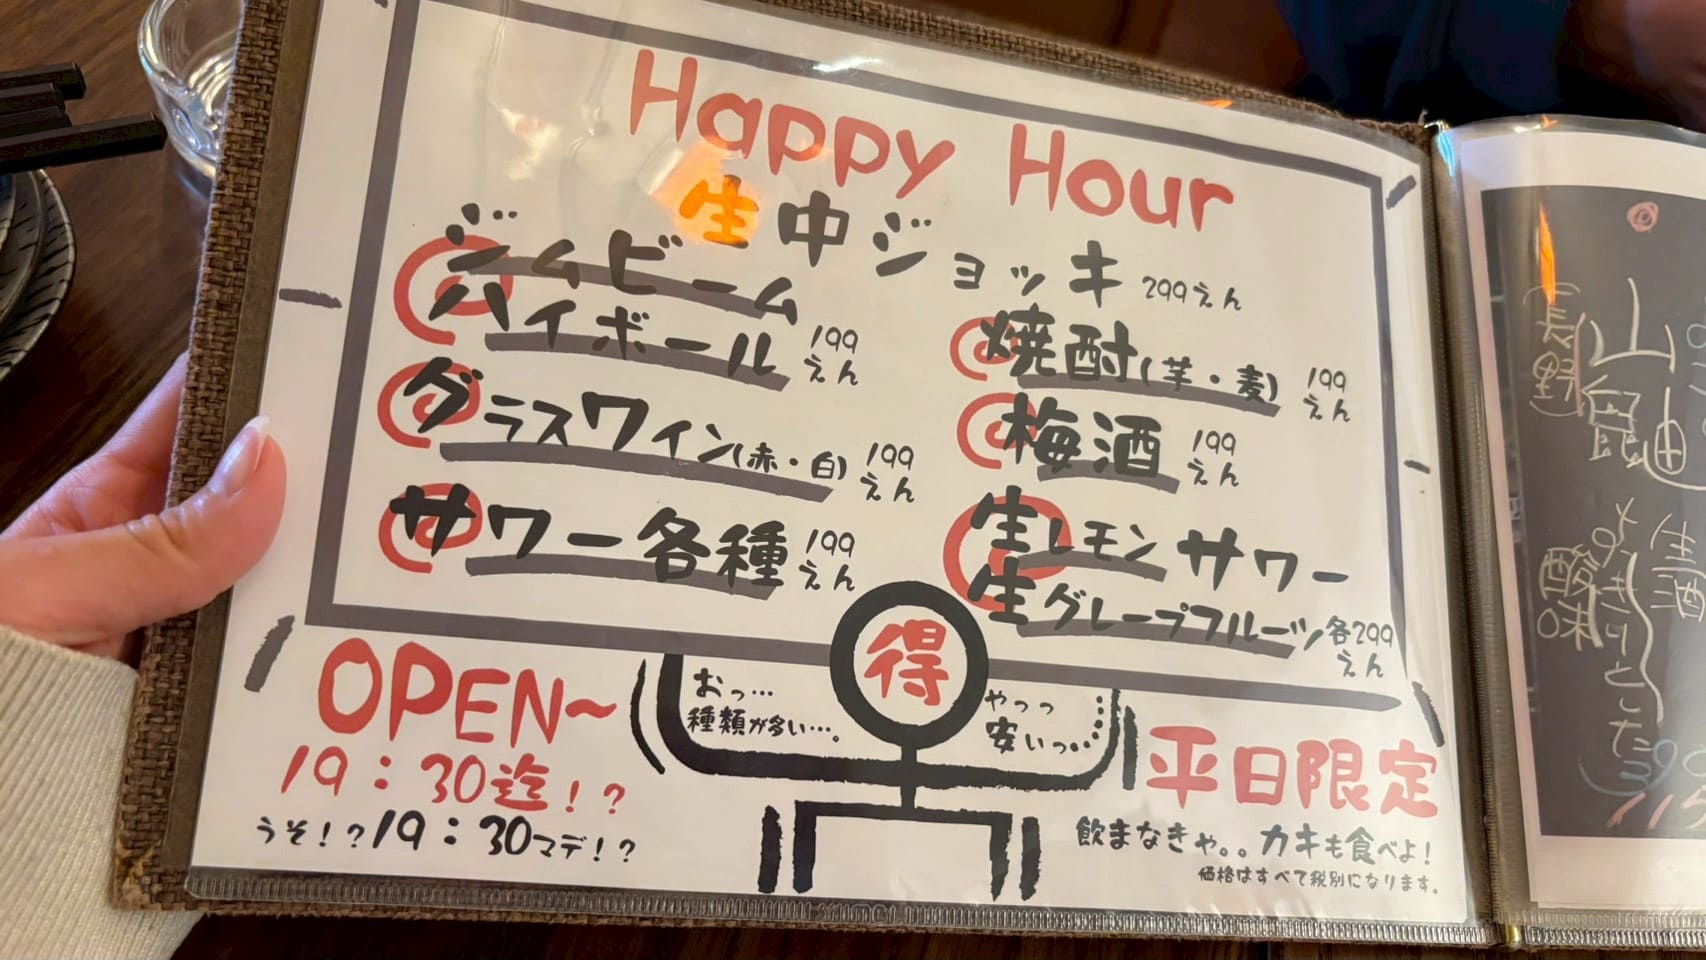 Happy Hour
生中ジョッキ 299えん
ジムビーム
ハイボール 199えん
焼酎(芋・麦) 199えん
グラスワイン(赤・白) 199えん
梅酒 199えん
サワー各種 199えん
生レモンサワー
生グレープフルーツ 各299えん
得
おっ…
種類が多い…。
やっっ
安いっ…
OPEN~
19:30迄!?
うそ!?19:30マデ!?
平日限定
飲まなきゃ。。カキも食べよ!
価格はすべて税別になります。